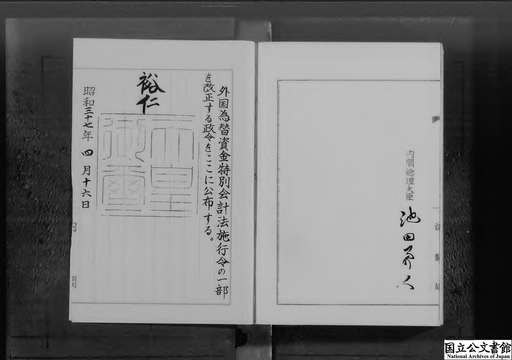 内閣総理大臣
池田勇人
外国為替資金特別会計法施行令の一部
を改正する政令をここに公布する。
裕仁
天皇
御璽
昭和三十七年四月十六日
国立公文書館
National Archives of Japan